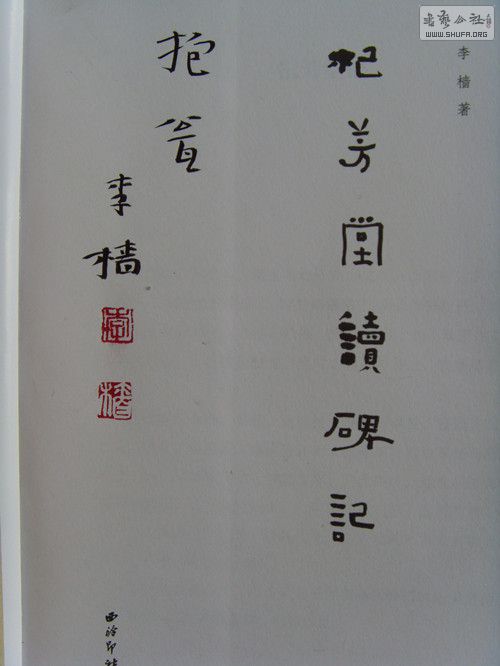 書藝公社
WWW.SHUFA.ORG
李樯著
杞芳堂讀碑記
抱瓮
李樯
西泠印社